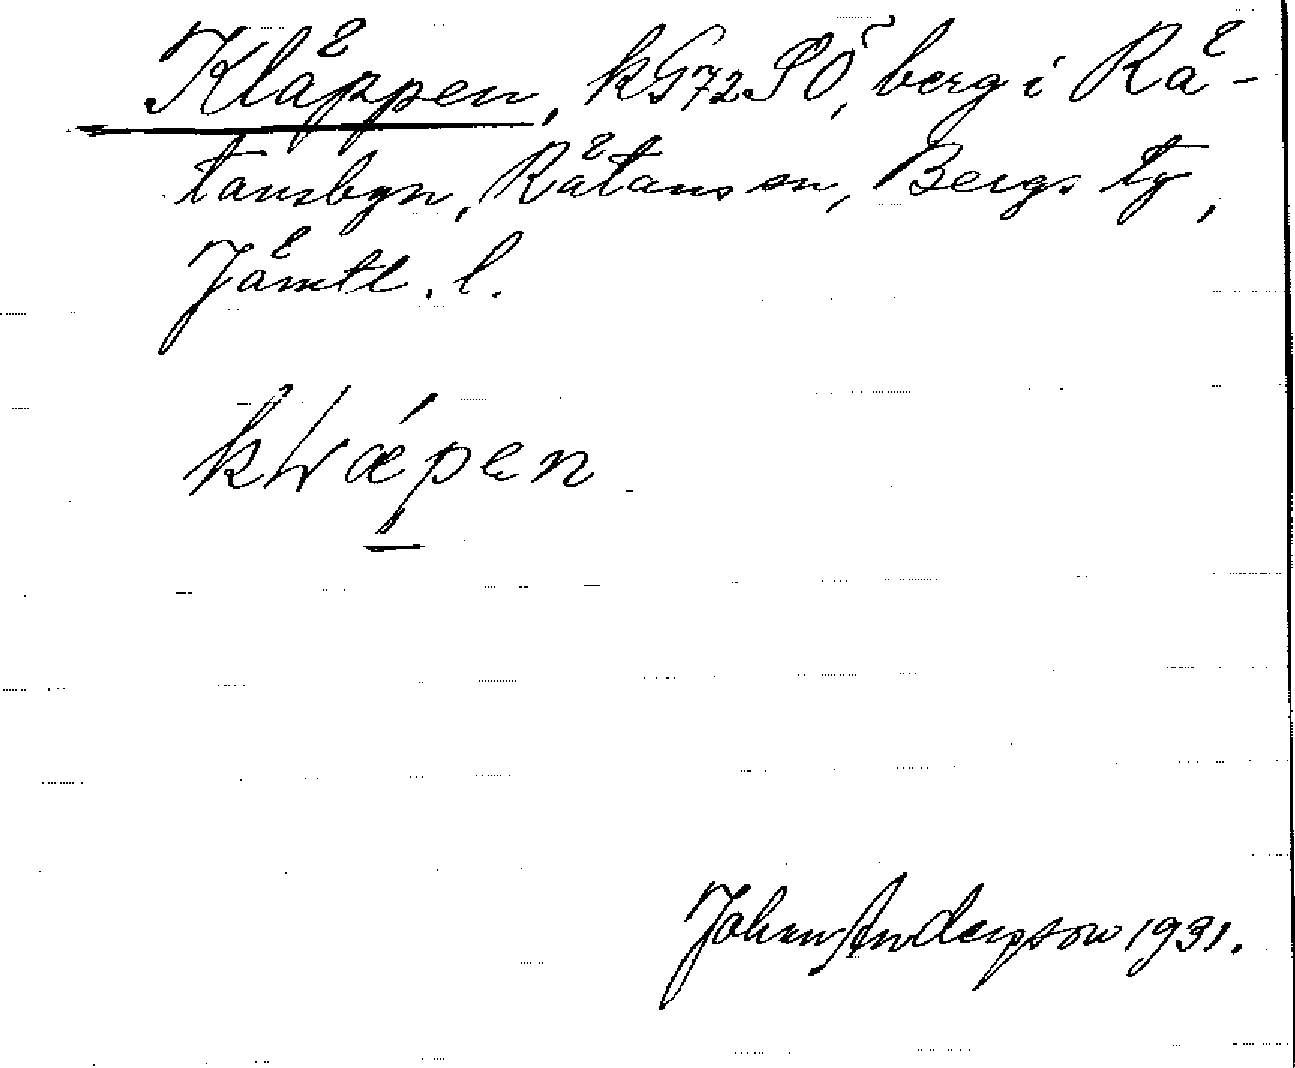 Kläppen, kG72SÖ, berg i Rä-
tansbyn, Rätans sn, Bergs tg,
Jämtl. l.
Johan Andersson 1931.